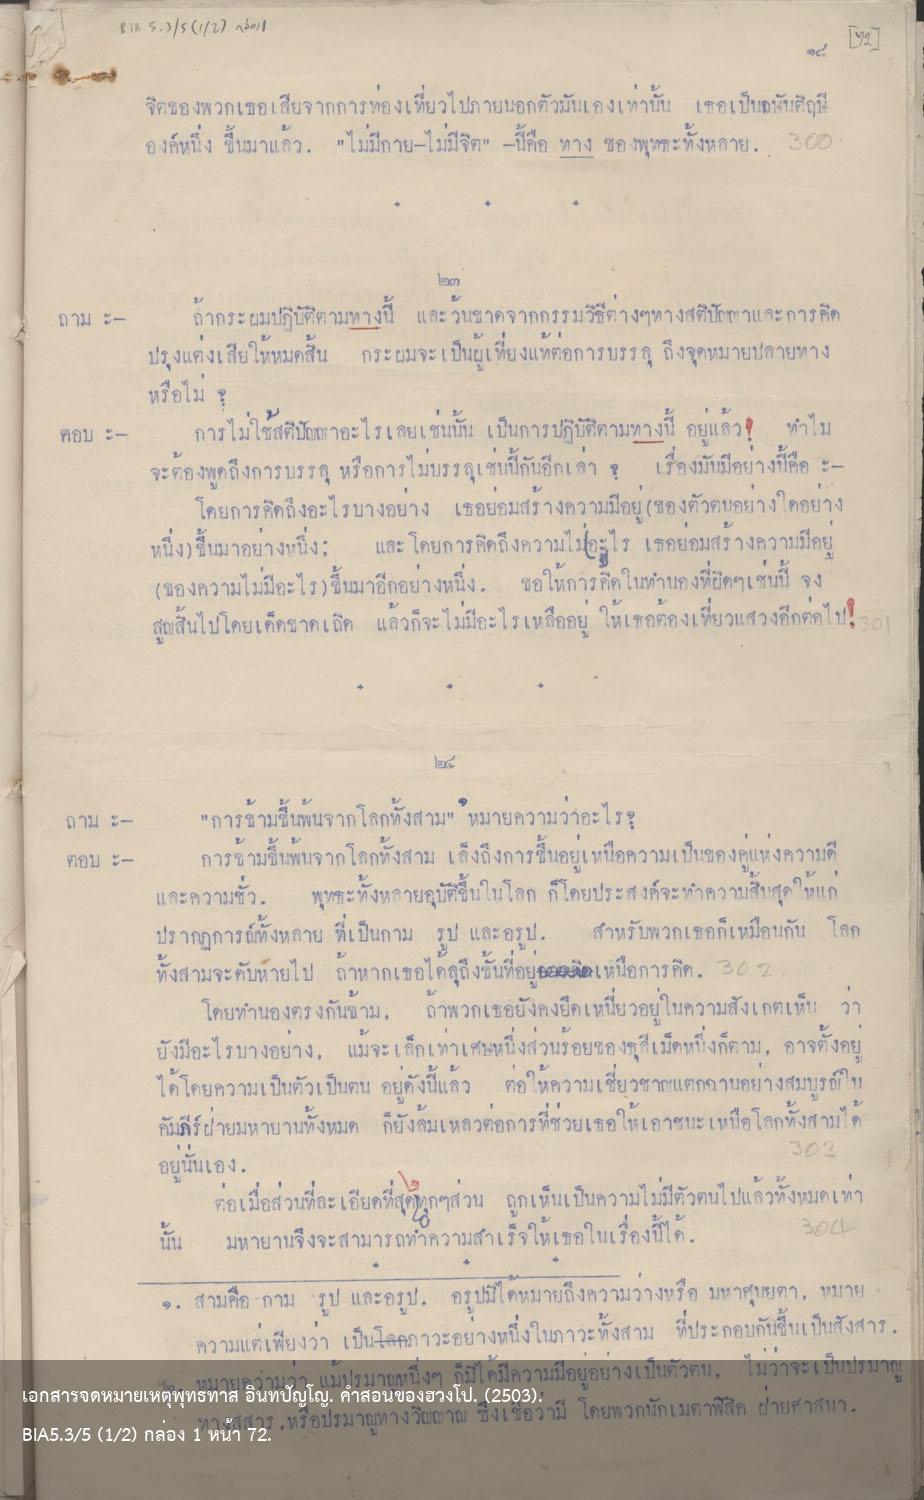 BIA 5.3/5 (1/2) กล่อง1
[72]
๑๘
จิตของพวกเธอเสียจากการท่องเที่ยวไปภายนอกตัวมันเองเท่านั้น เธอเป็น
องค์หนึ่ง ขึ้นมาแล้ว. "ไม่มีกาย–ไม่มีจิต" –นี้คือ ทาง ของพุทธะทั้งหลาย. 300
๒๓
ถาม ะ– ถ้ากระผมปฏิบัติตามทางนี้ และเว้นขาดจากกรรมวิธีต่างๆทางสติปัญญาและการคิด
ปรุงแต่งเสียให้หมดสิ้น กระผมจะเป็นผู้เที่ยงแท้ต่อการบรรลุ ถึงจุดหมายปลายทาง
หรือไม่ ?
ตอบ ะ– การไม่ใช้สติปัญญาอะไรเลยเช่นนั้น เป็นการปฏิบัติตามทางนี้ อยู่แล้ว! ทำไม
จะต้องพูดถึงการบรรลุ หรือการไม่บรรลุเช่นนี้กันอีกเล่า ? เรื่องมันมีอย่างนี้คือ ะ–
โดยการคิดถึงอะไรบางอย่าง เธอย่อมสร้างความมีอยู่(ของตัวตนอย่างใดอย่าง
หนึ่ง)ขึ้นมาอย่างหนึ่ง; และโดยการคิดถึงความไม่อะไร เธอย่อมสร้างความมีอยู่
(ของความไม่มีอะไร)ขึ้นมาอีกอย่างหนึ่ง. ขอให้การคิดในทำนองที่ผิดๆเช่นนี้ จง
สูญสิ้นไปโดยเด็ดขาดเถิด แล้วก็จะไม่มีอะไรเหลืออยู่ ให้เธอต้องเที่ยวแสวงอีกต่อไป! 301
๒๔
ถาม ะ– "การข้ามขึ้นพ้นจากโลกทั้งสาม"๑ หมายความว่าอะไร?
ตอบ ะ– การข้ามขึ้นพ้นจากโลกทั้งสาม เล็งถึงการขึ้นอยู่เหนือความเป็นของคู่แห่งความดี
และความชั่ว. พุทธะทั้งหลายอุบัติขึ้นในโลก ก็โดยประสงค์จะทำความสิ้นสุดให้แก่
ปรากฏการณ์ทั้งหลาย ที่เป็นกาม รูป และอรูป. สำหรับพวกเธอก็เหมือนกัน โลก
ทั้งสามจะดับหายไป ถ้าหากเธอได้ลุถึงชั้นที่อยู่เหนือการคิด. 302
โดยทำนองตรงกันข้าม, ถ้าพวกเธอยังคงยึดเหนี่ยวอยู่ในความสังเกตเห็น ว่า
ยังมีอะไรบางอย่าง, แม้จะเล็กเท่าเศษหนึ่งส่วนร้อยของธุลีเม็ดหนึ่งก็ตาม, อาจตั้งอยู่
ได้โดยความเป็นตัวเป็นตน อยู่ดังนี้แล้ว ต่อให้ความเชี่ยวชาญแตกฉานอย่างสมบูรณ์ใน
คัมภีร์ฝ่ายมหายานทั้งหมด ก็ยังล้มเหลวต่อการที่ช่วยเธอให้เอาชนะเหนือโลกทั้งสามได้
อยู่นั่นเอง. 303
ต่อเมื่อส่วนที่ละเอียดที่สุด๒ทุกๆส่วน ถูกเห็นเป็นความไม่มีตัวตนไปแล้วทั้งหมดเท่า
นั้น มหายานจึงจะสามารถทำความสำเร็จให้เธอในเรื่องนี้ได้. 304
๑. สามคือ กาม รูป และอรูป. อรูปมิได้หมายถึงความว่างหรือ มหาศุนยตา, หมาย
ความแต่เพียงว่า เป็นโลกภาวะอย่างหนึ่งในภาวะทั้งสาม ที่ประกอบกันขึ้นเป็นสังสาร.
๒. หมายความว่า แม้ปรมาณูหนึ่งๆ ก็มิได้มีความมีอยู่อย่างเป็นตัวตน, ไม่ว่าจะเป็นปรมาณู
ทางสสาร,หรือปรมาณูทางวิญญาณ ซึ่งเชื่อว่ามี โดยพวกนักเมตาฟิสิค ฝ่ายศาสนา.
เอกสารจดหมายเหตุพุทธทาส อินทปัญโญ. คำสอนของฮวงโป. (2503).
BIA5.3/5 (1/2) กล่อง 1 หน้า 72.